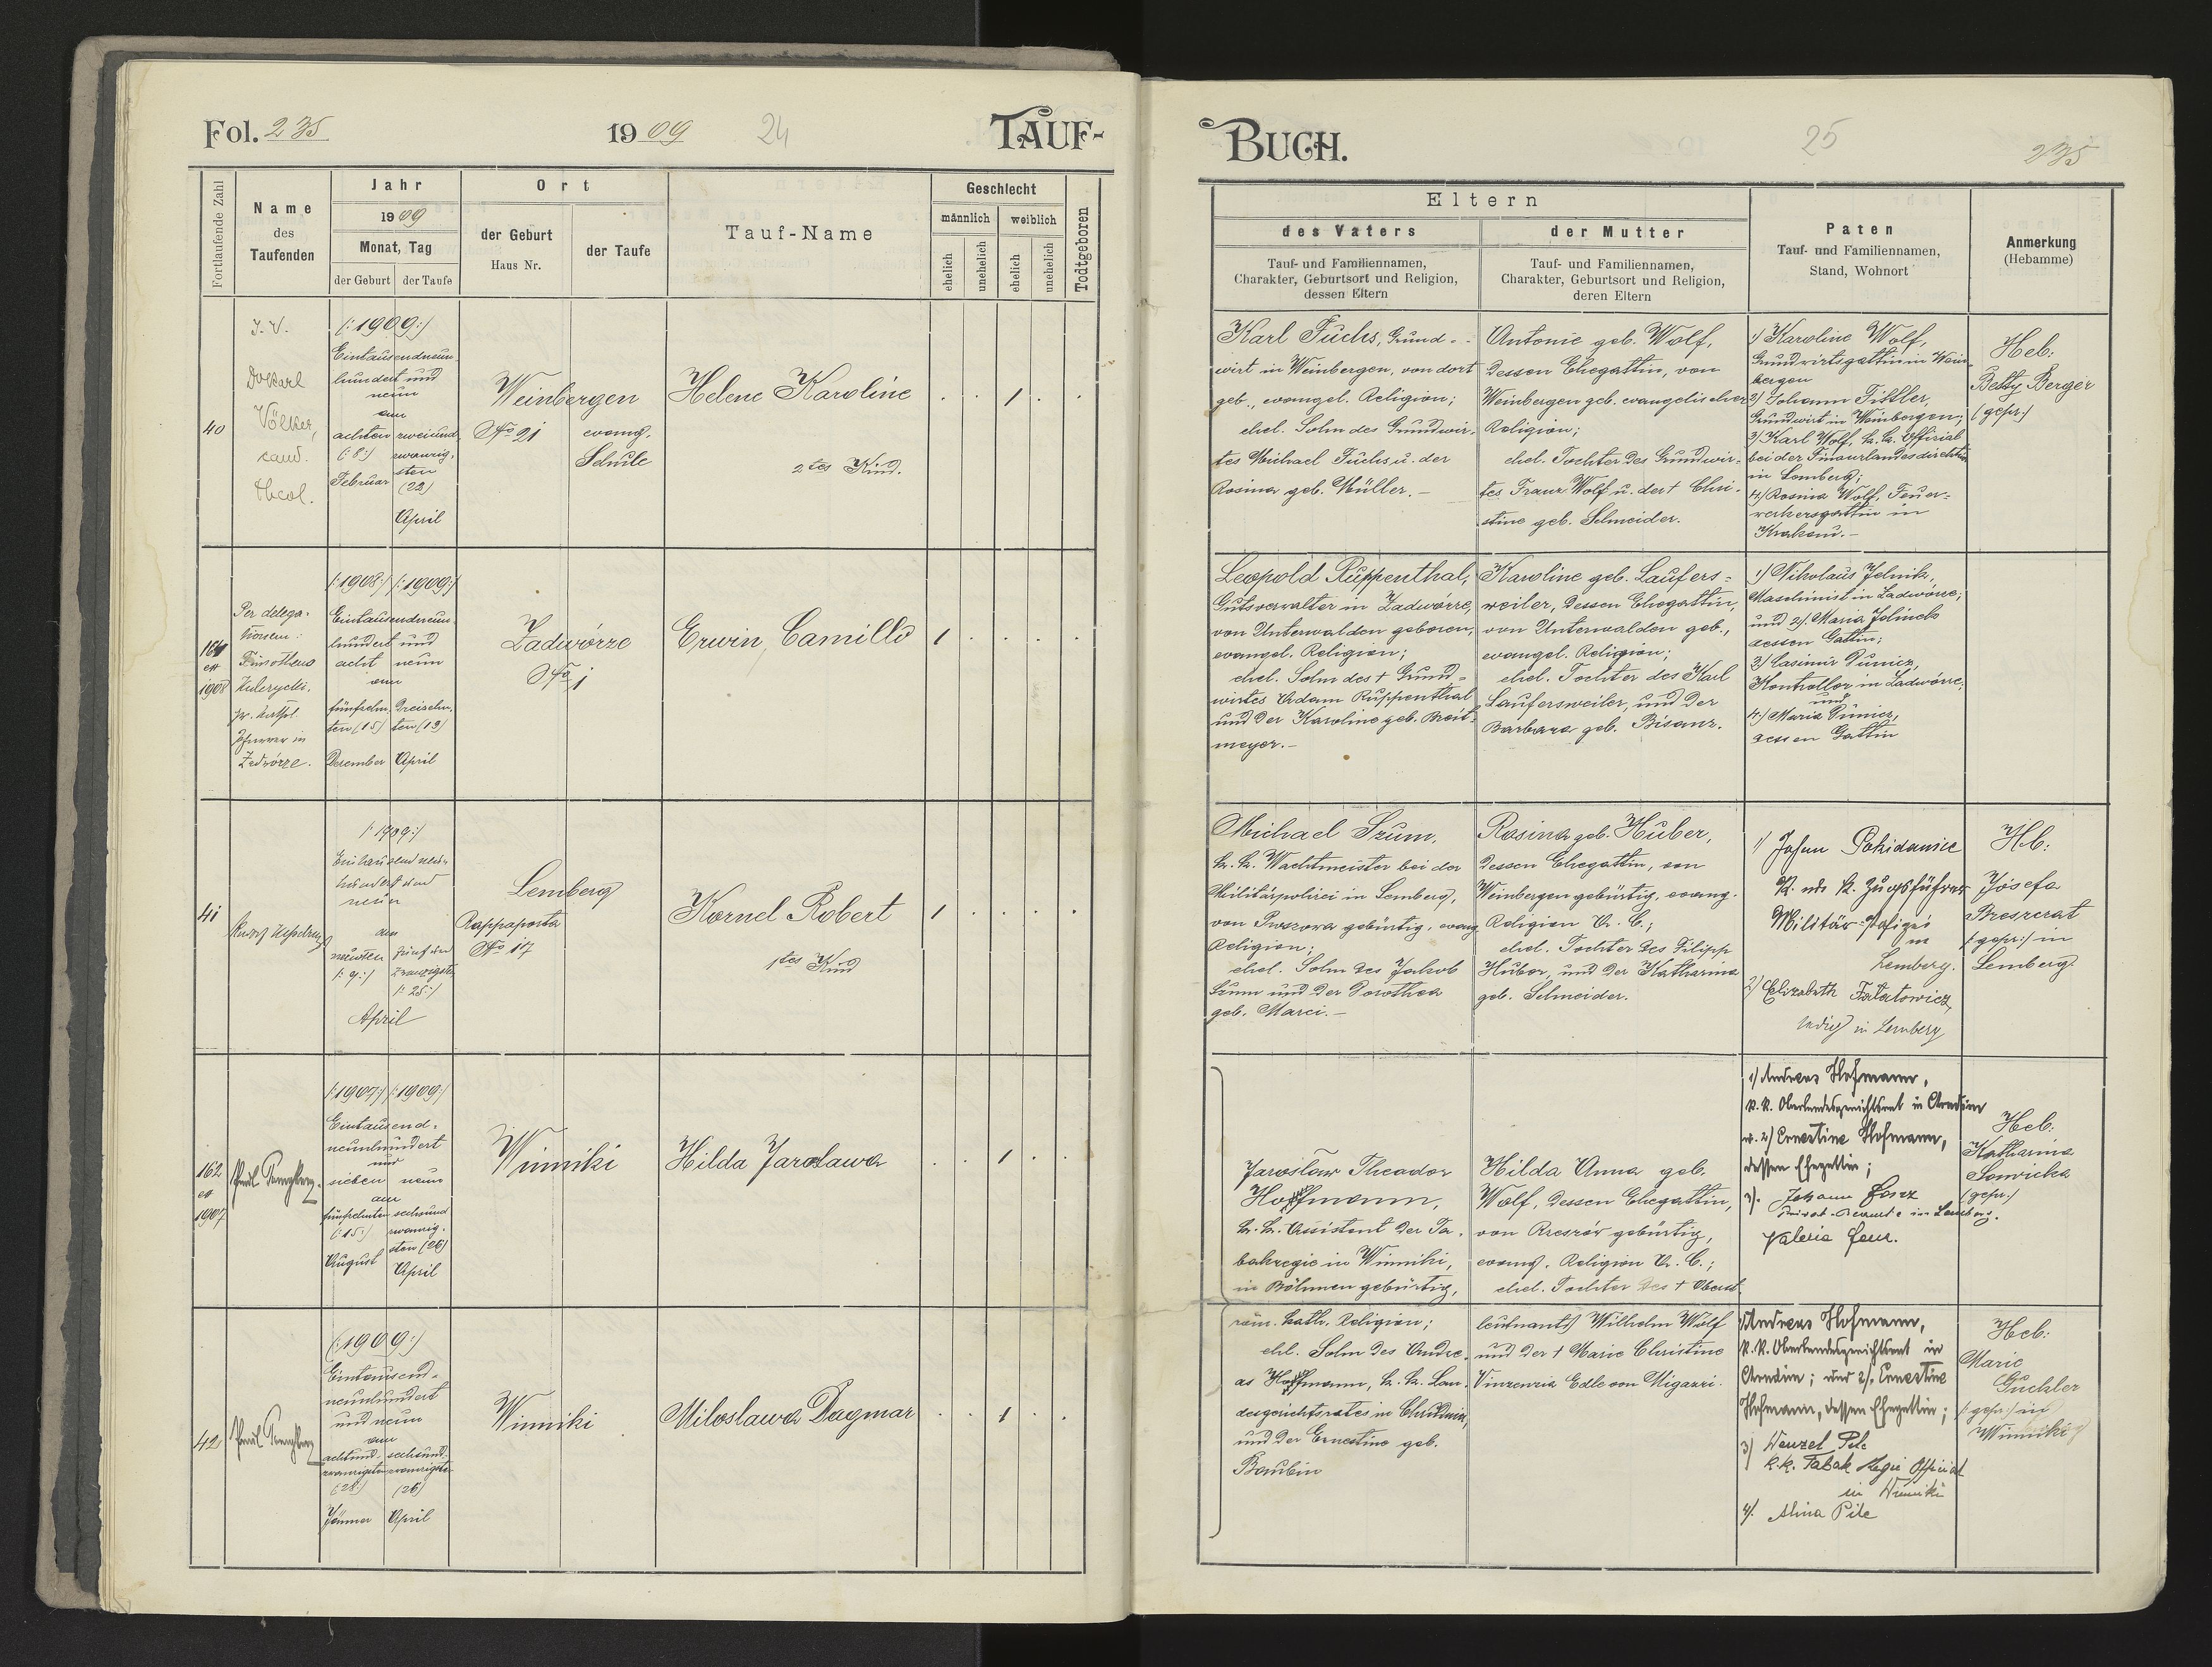 Fol. 235
1909
24
TAUF-
Fortlaufende Zahl
Name
des
Taufenden
Jahr
1909
Monat, Tag
der Geburt
der Taufe
Ort
der Geburt
Haus Nr.
der Taufe
Tauf-Name
Geschlecht
männlich
weiblich
ehelich
unehelich
ehelich
unehelich
Todtgeboren
40
I. V.
Völker,
cand.
theol.
(:1909:)
Eintausendneun-
hundert und
neun
am
achten
(:8:)
Februar
zweiund-
zwanzig-
sten
(22)
April
Weinbergen
No 21
evang.
Schule
Helene Karoline
2tes Kind.
1
1908
Per delega-
tionem:
Pfarrer in
Zadwórze.
(:1908:) (:1909:)
Eintausendneun-
hundert und
acht neun
am
fünfzehn- dreizehn-
ten (15) ten (13)
Dezember April
Zadwórze
No 1
Erwin Camillo
1
41
(:1909:)
Eintausend neun-
hundert und
neun
am
neunten
(:9:)
fünfund
zwanzigsten
(:25:)
April
Lemberg
Rappaporta
No 17
Kornel Robert
1tes Kind
1
162
ex
1907
(:1907:) (:1909:)
Eintausend-
neunhundert
und
sieben neun
am
fünfzehnten
(:15:)
August
sechsund
zwanzig-
sten (26)
April
Winniki
Hilda Jaroslawa
1
42
(:1909:)
Eintausend-
neunhundert
und neun
am
achtund-
zwanzigsten
(:28:)
Jänner
sechsund-
zwanzigsten
(26)
April
Winniki
Miloslawa Dagmar
1
BUCH.
25
235
Eltern
des Vaters
Tauf- und Familiennamen,
Charakter, Geburtsort und Religion,
dessen Eltern
der Mutter
Tauf- und Familiennamen,
Charakter, Geburtsort und Religion,
deren Eltern
Paten
Tauf- und Familiennamen,
Stand, Wohnort
Anmerkung
(Hebamme)
Karl Fuchs, Grund-
wirt in Weinbergen, von dort
geb., evangel. Religion;
ehel. Sohn des Grundwir-
tes Michael Fuchs u. der
Rosina geb. Müller.-
Antonie geb. Wolf,
dessen Ehegattin, von
Weinbergen geb. evangelischer
Religion;
ehel. Tochter des Grundwir-
tes Franz Wolf u. der † Chri-
stine geb. Schneider.
1) Karoline Wolf,
Grundwirtsgattin in Wein-
bergen
2) Johann
Grundwirt in Weinbergen;
3) Karl Wolf, k. k. Offizial
bei der Finanzlandesdirektion
in Lemberg;
4) Rosina Wolf, Feuer-
werkersgattin in
Krakau.-
Heb:
Betty Berger
(gepr:)
Leopold Ruppenthal,
Gutsverwalter in Zadwórze,
von Unterwalden geboren,
evangel. Religion;
ehel. Sohn des † Grund-
wirtes Adam Ruppenthal
und der Karoline geb. Breit-
meyer.-
Karoline geb. Laufers-
weiler, dessen Ehegattin,
von Unterwalden geb.,
evangel. Religion;
ehel. Tochter des Karl
Laufersweiler, und der
Barbara geb. Bisanz.
1) Nikolaus Jelinik,
Maschinist in Zadwórze;
und 2) Maria Jelinek
dessen Gattin;
3) Casimir
Kontrollor in Zadwórze;
und
4) Maria
dessen Gattin
Michael Szum,
k. k. Wachtmeister bei der
Militärpolizei in Lemberg,
von gebürtig, evang.
Religion;
ehel. Sohn des Jakob
Szum und der Dorothea
geb. Marci.-
Rosina geb. Huber,
dessen Ehegattin, von
Weinbergen gebürtig, evang.
Religion A. C.;
ehel. Tochter des Filipp
Huber, und der Katharina
geb. Schneider.
1) Johann
K. und k. Zugsführer
Militär-Polizei
in
Lemberg.
2) Elizabeth
ledig in Lemberg
Hb:
Josefa
(:gepr:) in
Lemberg.
Jaroslaw Theodor
Hoffmann,
k. k. Assistent der Ta-
bakregie in Winniki,
in Böhmen gebürtig,
röm. kath. Religion;
ehl. Sohn des Andre-
as Hoffmann, k. k. Lan-
desgerichtsrates in Chrudim,
und der Ernestine geb.
Baubin
Hilda Anna geb.
Wolf, dessen Ehegattin,
von Rzeszów gebürtig,
evang. Religion A. C.;
ehel. Tochter des † Oberst-
leutnants Wilhelm Wolf
und der † Marie Christine
Vinzenzia Edle von Migazzi.
1) Andreas Hofmann,
k. k. Oberlandesgerichtsrat in Chrudim
u. 2) Ernestine Hofmann,
dessen Ehegattin;
3). Johann
Privat-Beamte in Lemberg.
Valeria
Heb:
Katharina
Sowicka
(gepr:)
1) Andreas Hofmann,
k. k. Oberlandesgerichtsrat in
Chrudim; und 2). Ernestine
Hofmann, dessen Ehegattin;
3) Wenzel Pilc
k.k. Tabak Regie Official
in Winniki
4). Alina Pilc
Heb:
Marie
Guchler
(:gepr:) in
Winniki